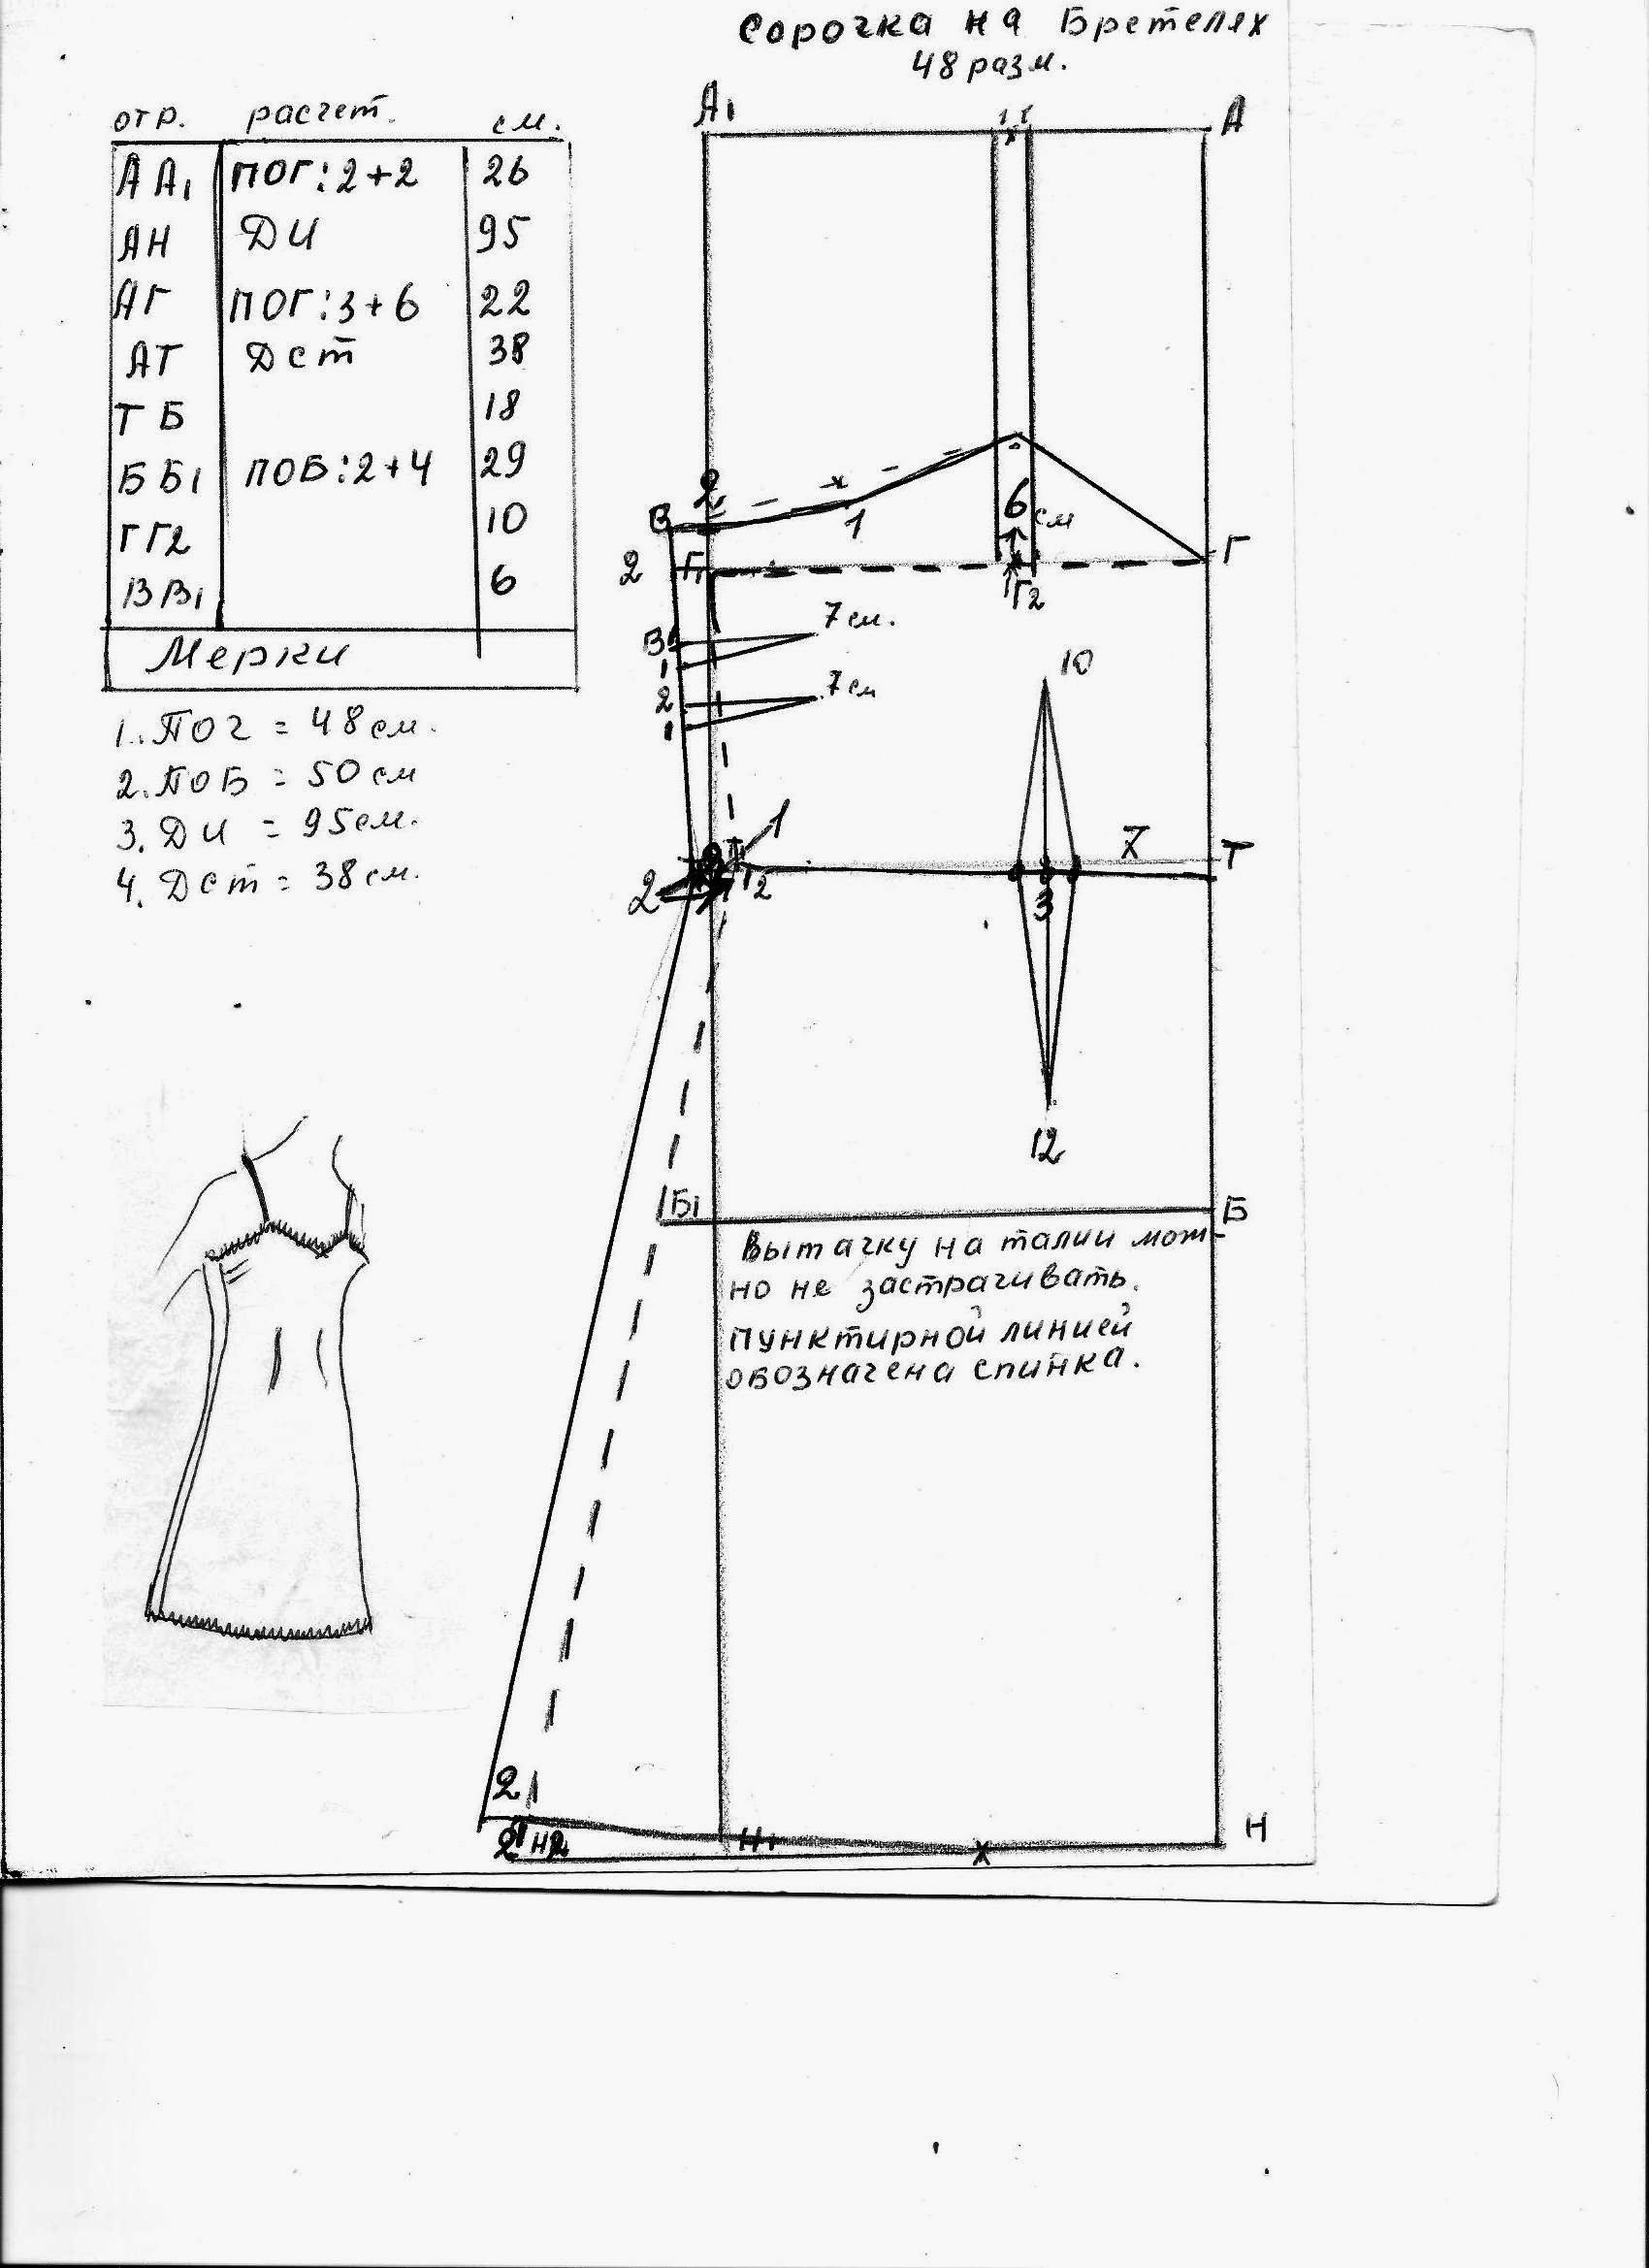 Сорочка на Бретелях
48 разм.
отр. расчет. см.
АА1 ПОГ:2+2 26
АН ДИ 95
АГ ПОГ:3+6 22
АТ Дст 38
ТБ 18
ББ1 ПОБ:2+4 29
ГГ2 10
ВВ1 6
Мерки
1. ПОГ = 48 см.
2. ПОБ = 50 см
3. ДИ = 95 см.
4. Дст = 38 см.
А1 А
2
В 1 6 см
2 Г1 Г
Г2
В1 7 см.
1
2 7 см
1
10
1
7 Т
2 Т2 3
12
Б1 Б
Вытачку на талии мож-
но не застрачивать.
Пунктирной линией
обозначена спинка.
2
2 Н2 Н1 Х Н